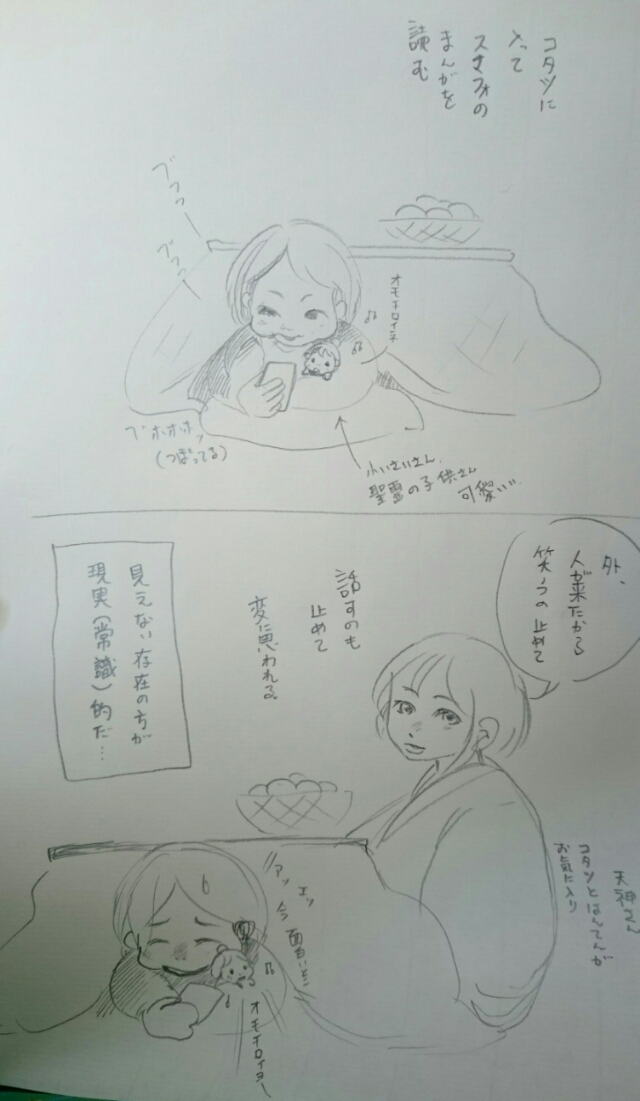 コタツに
入って
スマフォの
まんがを
読む
ブフッー
ブフッ
オモチロイネ
ブホホホッ
(つぼってる)
小いさいさん。
聖霊の子供さん
可愛いい
外、
人が来たから
笑うの止めて
話すのも
止めて
変に思われる。
見えない存在の方が
現実(常識)的だ…
天神さん
コタツとはんてんが
お気に入り
アッ エッ
今 面白いとこ
オモチロイヨー